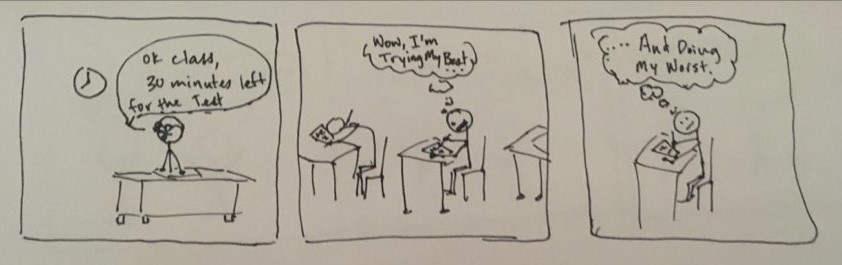 OK class,
30 minutes left
for the Test
Wow, I'm
Trying My Best
...
... And Doing
My Worst.